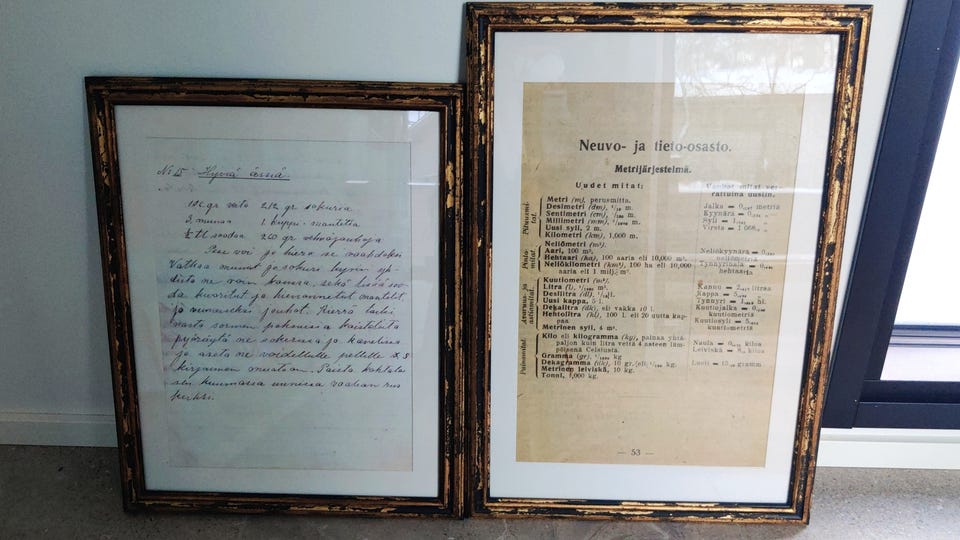 No 15 Hyviä ässiä
196 gr voita 212 gr sokuria
3 munaa 1 kuppi mantelia
½ tl soodaa 260 gr vehnäjauhoja
Pese voi ja hiero se vaahdoksi
Vatkaa munat ja sokuri hyvin yh-
distä ne voin kanssa, sekä lisää soo-
da kuoritut ja hienonnetut mantelit
ja viimeiseksi jauhot. Kierrä taiki-
nasta sormen paksuisia
pyöräytä ne sokerissa ja kanelissa
ja aseta ne voidellulle pellille S
kirjaimen muotoon. Paista
kuumassa uunissa vaalean rus
keiksi.
Neuvo- ja tieto-osasto.
Metrijärjestelmä.
Uudet mitat:
Pituusmi-
tat.
Metri (m), perusmitta.
Desimetri (dm), ¹/₁₀ m.
Sentimetri (cm), ¹/₁₀₀ m.
Millimetri (mm), ¹/₁₀₀₀ m.
Uusi syli, 2 m.
Kilometri (km), 1,000 m.
Pinta-
mitat.
Neliömetri (m²).
Aari, 100 m².
Hehtaari (ha), 100 aaria eli 10,000 m².
Neliökilometri (km²), 100 ha eli 10,000
aaria eli 1 milj. m².
Avaruus- ja
astiamitat.
Kuutiometri (m³).
Litra (l), ¹/₁₀₀₀ m³.
Desilitra (dl), ¹/₁₀ l.
Uusi kappa, 5 l.
Dekalitra (dkl), eli vakka 10 l.
Hehtolitra (hl), 100 l. eli 20 uutta kap-
paa.
Metrinen syli, 4 m³.
Painomitat.
Kilo eli kilogramma (kg), painaa yhtä-
paljon kuin litra vettä 4 asteen läm-
pöisenä Celsiusta.
Gramma (gr), ¹/₁₀₀₀ kg
Dekagramma (dk), 10 gr. eli ¹/₁₀₀ kg.
Metrinen leiviskä, 10 kg.
Tonni, 1,000 kg.
Vanhat mitat ver-
rattuina uusiin.
Jalka = metriä
Kyynärä =
Syli =
Virsta = 1 068,
Neliökyynärä =
neliömetriä
Tynnyriala =
hehtaaria
Kannu = litraa
Kappa =
Tynnyri = hl.
Kuutiojalka =
kuutiometriä
Kuutiosyli =
kuutiometriä
Naula = kiloa
Leiviskä = kiloa
Luoti = gramm
— 53 —